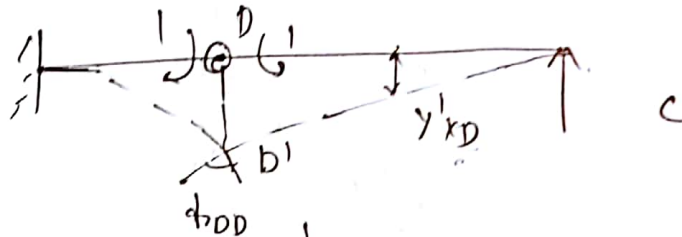 1 D 1
y'xD
D'
ϕDD
C